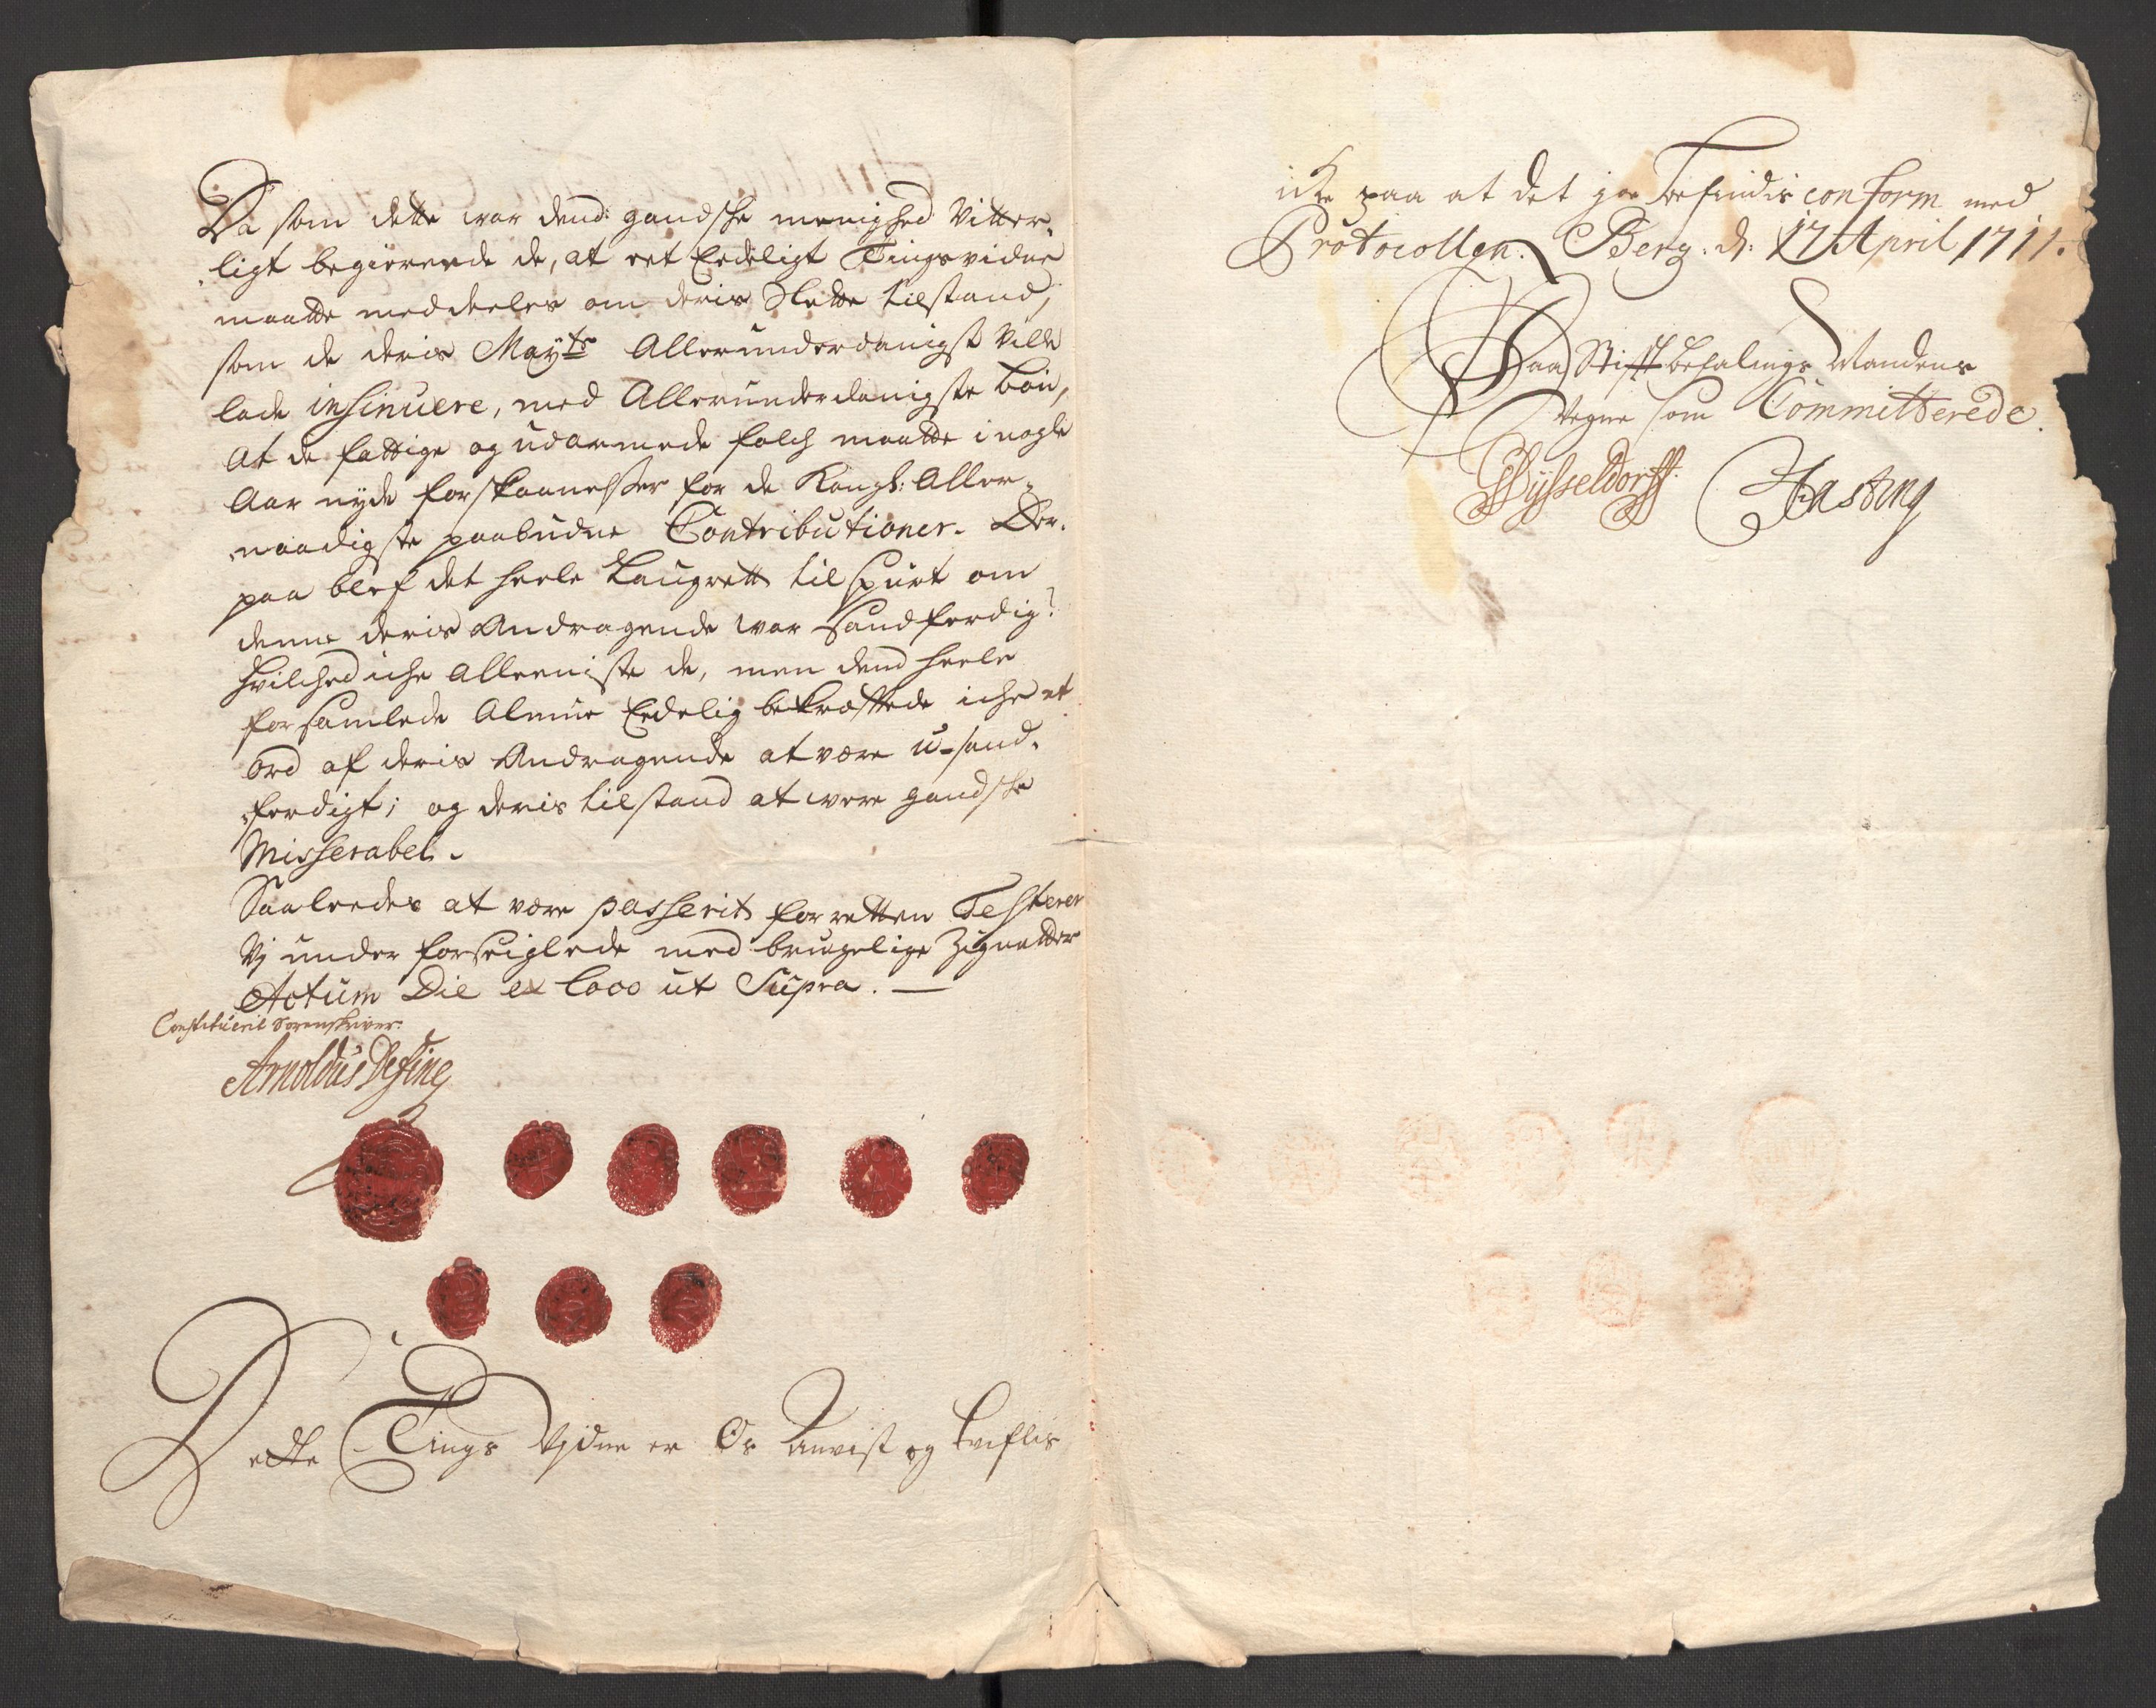 Da som dette war dend gandsche menighed Vitter-
ligt begierede de, at ret Eedeligt Tingsvidne
maatte meddeeles om deris Slette tilstand,
som de deris Mayts Allerunderdanigst Ville
lade insinuere, med Allerunderdanigste bøn,
At de fattige og udarmede folch maatte i nogle
Aar nyde forskaanelsser for de Kongl: Aller-
naadigste paabudne Contributioner. Der-
paa blef det heele Laugrett tilspurt om
denne deris Andragende war Sandferdig?
hvilched iche Alleeniste de, men dend heele
forsamlede Almue Eedelig bekræftede iche et
ord af deris Andragende at være u-sand-
ferdigt; og deris tilstand at were gandsche
Misserabel.
Saaleedes at være passerit for retten Testerer
Vj under forseiglede med brugelige Zignetter
Actum Die et loco ut Supra. —
Constituerit Sorenskriver.
Arnoldus Defing
Dette Tings Vidne er Os Anvist og tvifles
icke paa at det jo befindis conform med
Protocollen. Berg. d: 17 April 1711.
Paa Stiftbefalings Mandens
Vegne som Committerede.
Dÿsseldorff. Hasting